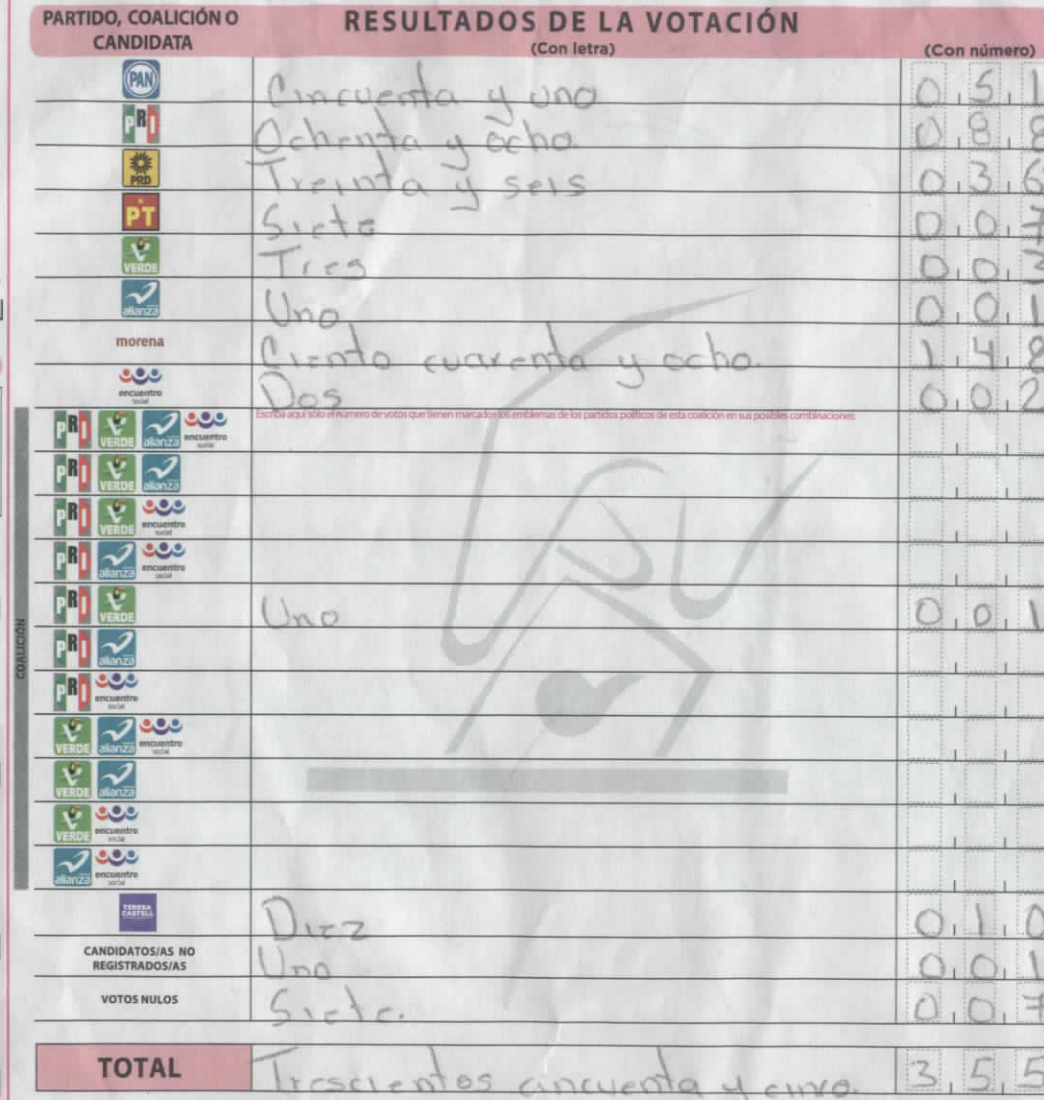 PARTIDO, COALICIÓN O CANDIDATA
RESULTADOS DE LA VOTACIÓN
(Con letra)
(Con número)
PAN Cincuenta y uno 0 5 1
PRI Ochenta y ocho 0 8 8
PRD Treinta y seis 0 3 6
PT Siete 0 0 7
VERDE Tres 0 0 3
alianza Uno 0 0 1
morena Ciento cuarenta y ocho. 1 4 8
encuentro social Dos 0 0 2
Escriba aquí sólo el número de votos que tienen marcados los emblemas de los partidos políticos de esta coalición en sus posibles combinaciones:
COALICIÓN
PRI VERDE alianza encuentro social
PRI VERDE alianza
PRI VERDE encuentro social
PRI alianza encuentro social
PRI VERDE Uno 0 0 1
PRI alianza
PRI encuentro social
VERDE alianza encuentro social
VERDE alianza
VERDE encuentro social
alianza encuentro social
TERESA CASTELL Diez 0 1 0
CANDIDATOS/AS NO REGISTRADOS/AS Uno 0 0 1
VOTOS NULOS Siete. 0 0 7
TOTAL Trescientos cincuenta y cinco. 3 5 5